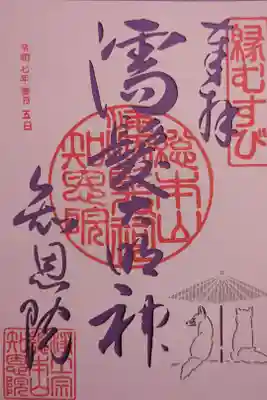 縁むすび
奉拝
濡髪大明神
総本山
知恩院
令和七年 五日
知恩院
浄土宗
総本山
知恩院